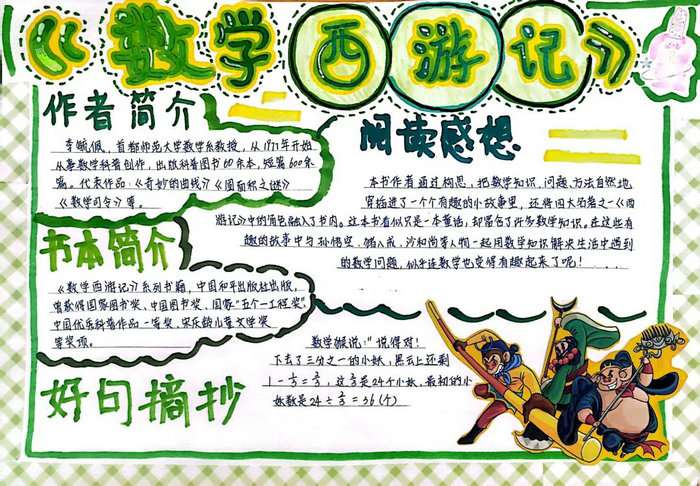 《数学西游记》
作者简介
李毓佩,首都师范大学数学系教授,从1977年开始
从事数学科普创作,出版科普图书60余本,短篇600余
篇。代表作品:《奇妙的曲线》《圆面积之谜》
《数学司令》等。
阅读感想
本书作者通过构思,把数学知识、问题、方法自然地
穿插进了一个个有趣的小故事里,还将四大名著之一《西
游记》中的角色融入了书内。这本书看似只是一本童话,却富含了许多数学知识。在这些有
趣的故事中与孙悟空、猪八戒、沙和尚等人物一起用数学知识解决生活中遇到
的数学问题,似乎连数学也变得有趣起来了呢!....
书本简介
《数学西游记》系列书籍,中国和平出版社出版,
曾获得国家图书奖、中国图书奖、国家"五个一工程奖"
中国优乐科普作品一等奖、宋庆龄儿童文学奖
等奖项。
好句摘抄
数学猴说:"说得对!
下去了三分之一的小妖,黑云上还剩
1-1/3=2/3,这2/3是24个小妖,最初的小
妖数是24÷2/3=36(个)